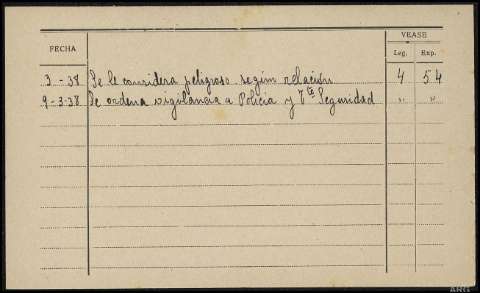 VEASE
FECHA Leg. Exp.
3 - 38 Se le considera peligroso segun relación 4 54
9 - 3 - 38 Se ordena vigilancia a Policia y Tte Seguridad " "